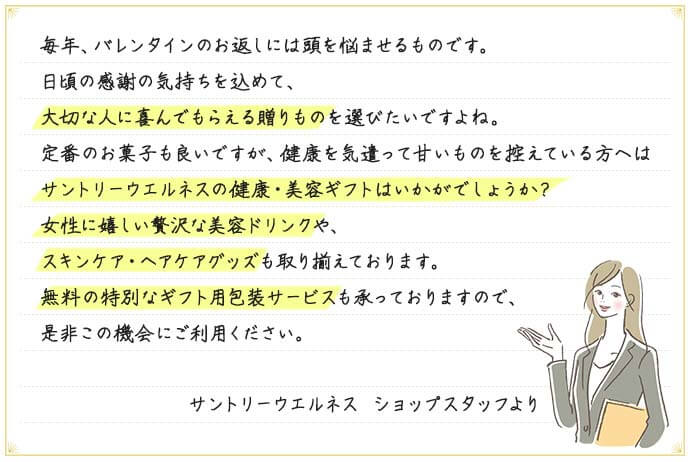 毎年、バレンタインのお返しには頭を悩ませるものです。
日頃の感謝の気持ちを込めて、
大切な人に喜んでもらえる贈りものを選びたいですよね。
定番のお菓子も良いですが、健康を気遣って甘いものを控えている方へは
サントリーウエルネスの健康・美容ギフトはいかがでしょうか？
女性に嬉しい贅沢な美容ドリンクや、
スキンケア・ヘアケアグッズも取り揃えております。
無料の特別なギフト用包装サービスも承っておりますので、
是非この機会にご利用ください。
サントリーウエルネス　ショップスタッフより